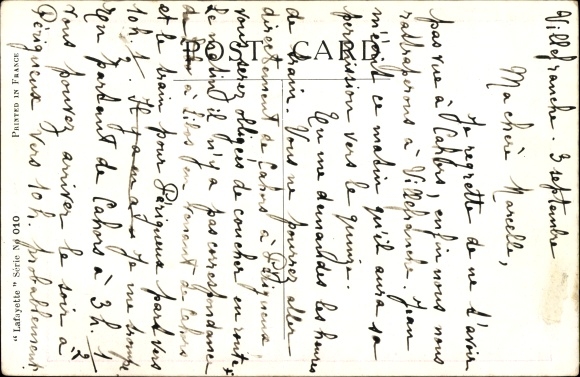 Villefranche. 3 septembre
Ma chère Marcelle,
Je regrette de ne t'avoir
pas vue à Cahors, enfin nous nous
rattraperons à Villefranche. Jean
m'écrit ce matin qu'il aura sa
permission vers le quinze.
Tu me demandes les heures
de train. Vous ne pourrez aller
directement de Cahors à Périgueux
vous serez obligées de coucher en route +
Le matin il n'y a pas correspondance
de train à Libos en venant de Cahors
et le train pour Périgueux part vers
10h 1/2. Il y a Je me trompe
En partant de Cahors à 3h. 1/2
vous pouvez arriver le soir à
Périgueux vers 10h. probablement.
POST CARD
PRINTED IN FRANCE
"Lafayette" Série No 010